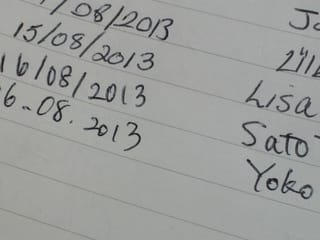 /08/2013 Jo
15/08/2013
16/08/2013 Lisa
6-08.2013 Sato
Yoko